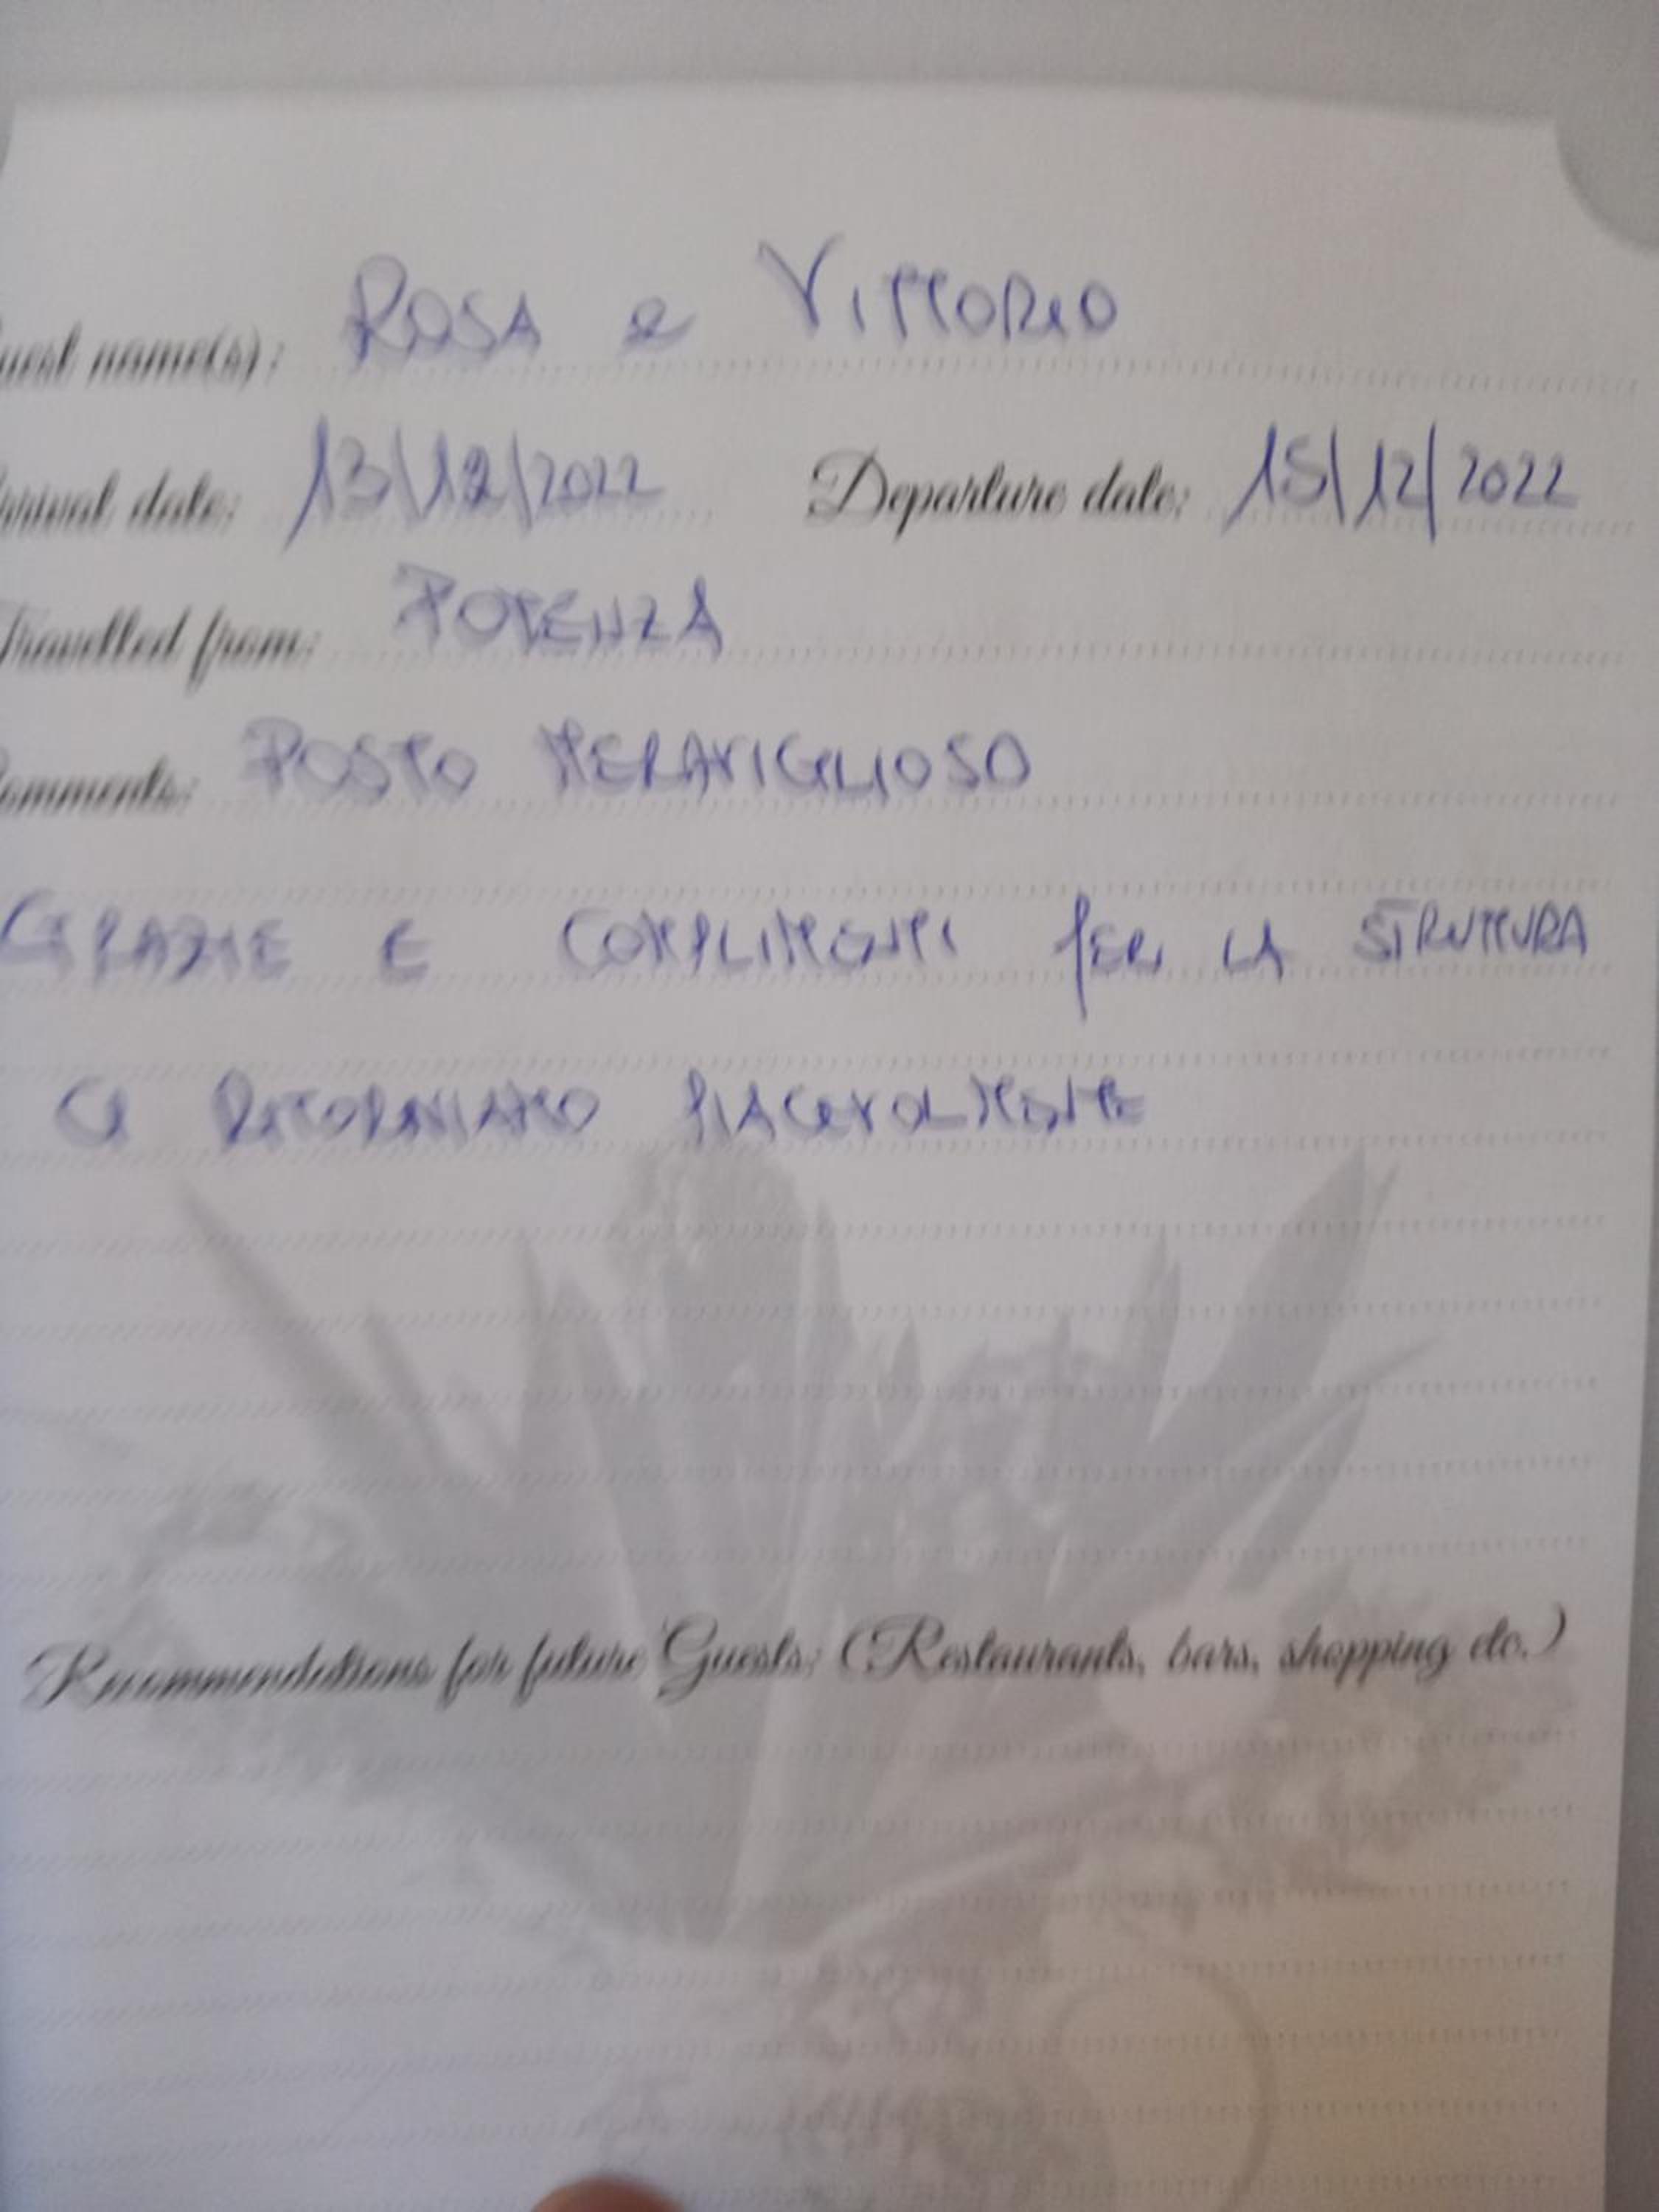 uest name(s): ROSA e VITTORIO
rrival date: 13/12/2022 Departure date: 15/12/2022
Travelled from: POTENZA
omments: POSTO MERAVIGLIOSO
GRAZIE E COMPLIMENTI PER LA STRUTTURA
CI RITORNIAMO PIACEVOLMENTE
Recommendations for future Guests: (Restaurants, bars, shopping etc.)